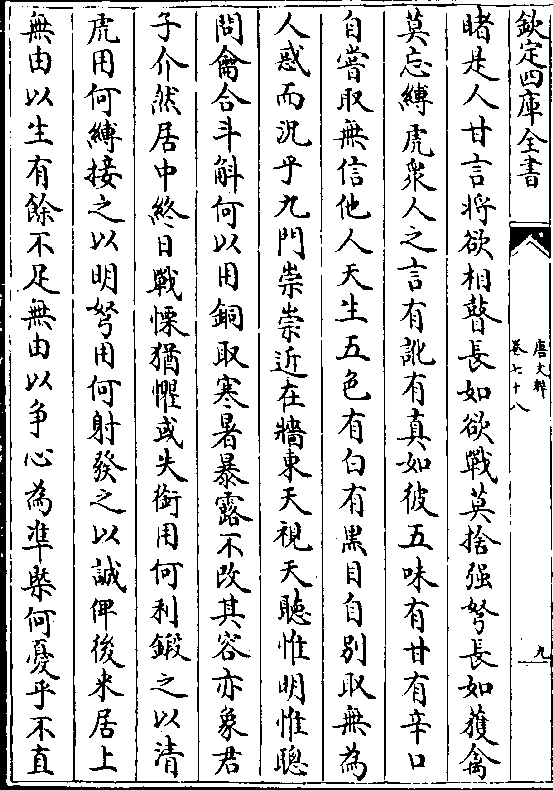 欽定四庫全書
唐文粹
卷七十八
九
睹是人甘言將欲相瞽長如欲戰莫捨强弩長如獲禽
莫忘縛虎衆人之言有訛有真如彼五味有甘有辛口
自嘗取無信他人天生五色有白有黑目自别取無為
人惑而況乎九門崇崇近在牆東天視天聽惟明惟聰
問龠合斗斛何以用銅取寒暑暴露不改其容亦象君
子介然居中終日戰慄猶懼或失銜用何利鍛之以清
虎用何縛接之以明弩用何射發之以誠俾後米居上
無由以生有餘不足無由以争心為準槩何憂乎不直